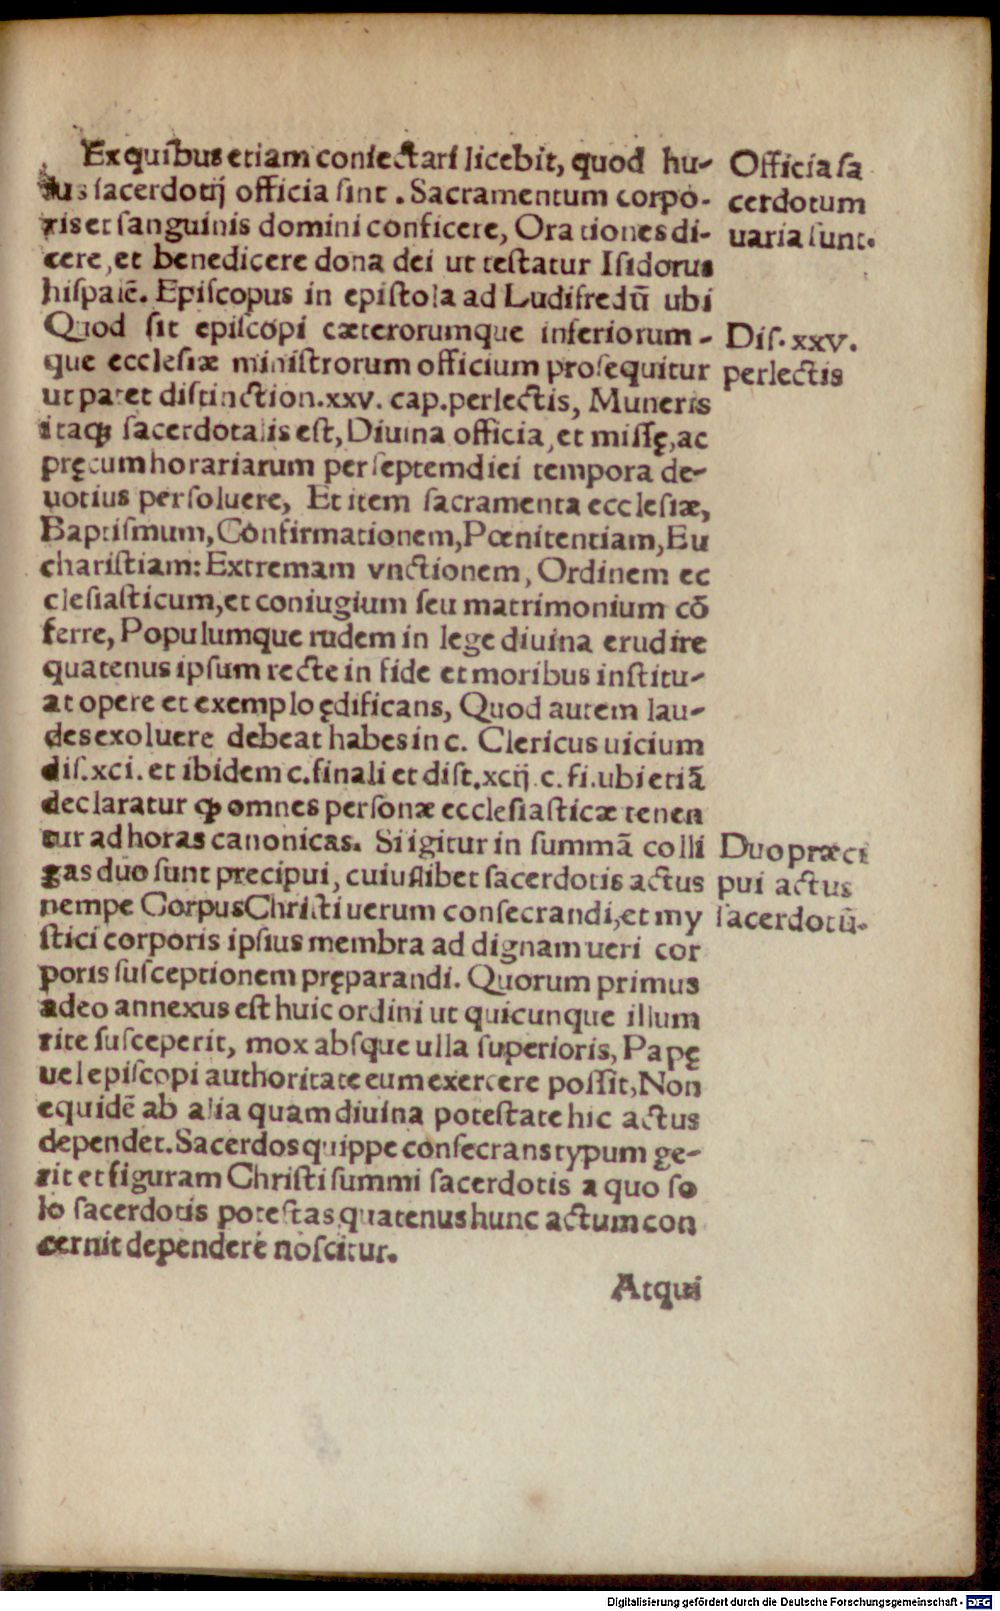 Ex quibus etiam consectari licebit, quod hu-
ius sacerdotij officia sint. Sacramentum corpo-
ris et sanguinis domini conficere, Orationes di-
cere, et benedicere dona dei ut testatur Isidorus
hispalē. Episcopus in epistola ad Ludifredū ubi
Quod sit episcopi cæterorumque inferiorum-
que ecclesiæ ministrorum officium prosequitur
ut patet distinction.xxv. cap.perlectis, Muneris
itaqꝫ sacerdotalis est, Diuina officia, et missę, ac
pręcum horariarum per septem diei tempora de-
uotius persoluere, Et item sacramenta ecclesiæ,
Baptismum, Confirmationem, Pœnitentiam, Eu
charistiam: Extremam vnctionem, Ordinem ec
clesiasticum, et coniugium seu matrimonium cō
ferre, Populumque rudem in lege diuina erudire
quatenus ipsum recte in fide et moribus institu-
at opere et exemplo ędificans, Quod autem lau-
des exoluere debeat habes in c. Clericus uicium
dis.xci. et ibidem c.finali et dist.xcij c.fi.ubi etiā
declaratur ꝙ omnes personæ ecclesiasticæ tenen
tur ad horas canonicas. Si igitur in summā colli
gas duo sunt precipui, cuiuslibet sacerdotis actus
nempe Corpus Christi uerum consecrandi, et my
stici corporis ipsius membra ad dignam ueri cor
poris susceptionem pręparandi. Quorum primus
adeo annexus est huic ordini ut quicunque illum
rite susceperit, mox absque ulla superioris, Papę
uel episcopi authoritate eum exercere possit, Non
equidē ab alia quam diuina potestate hic actus
dependet. Sacerdos quippe consecrans typum ge-
rit et figuram Christi summi sacerdotis a quo so
lo sacerdotis potestas quatenus hunc actum con
cernit dependere noscitur.
Atqui
Officia sa
cerdotum
uaria sunt.
Dis.xxv.
perlectis
Duo præci
pui actus
sacerdotū.
Digitalisierung gefördert durch die Deutsche Forschungsgemeinschaft - DFG